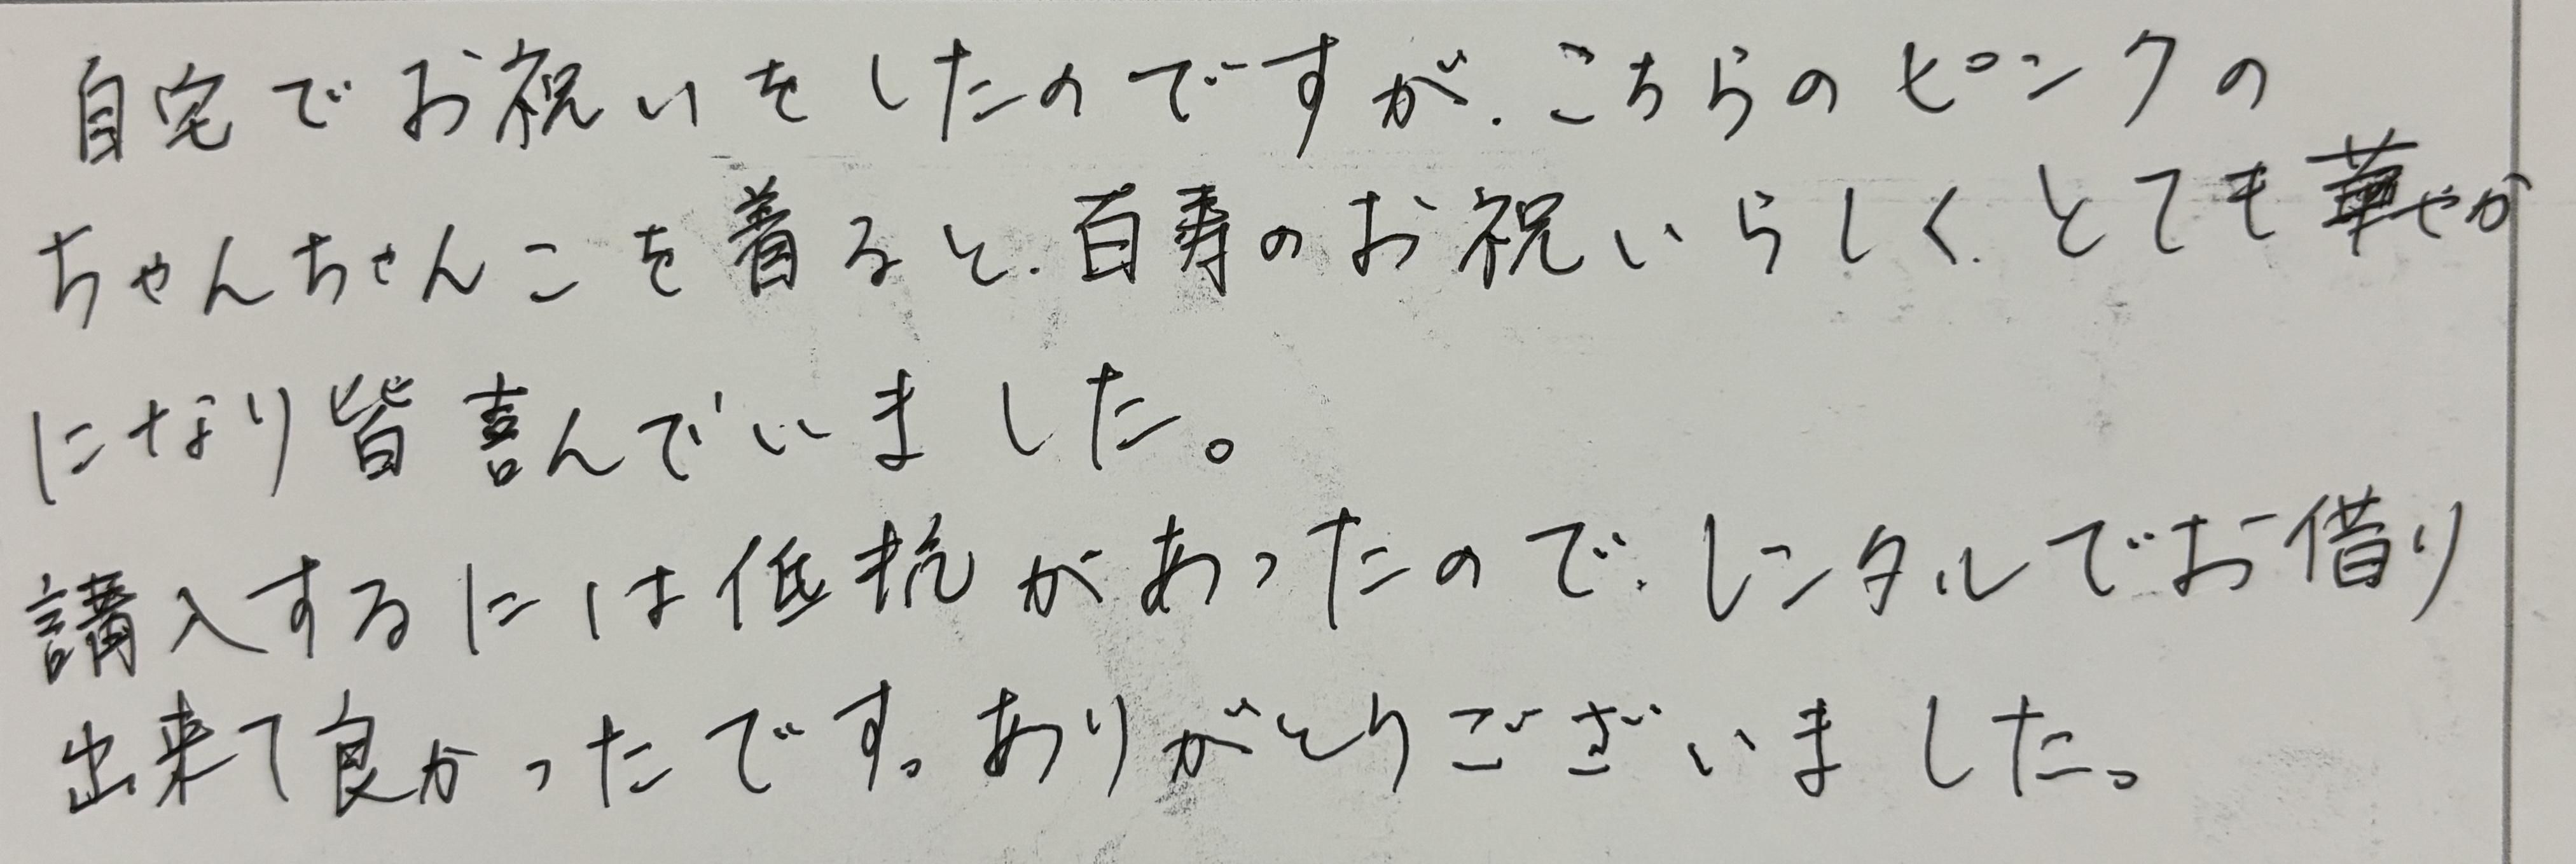 自宅でお祝いをしたのですが、こちらのピンクの
ちゃんちゃんこを着ると、百寿のお祝いらしく、とても華やか
になり皆喜んでいました。
講入するには低抗があったので、レンタルでお借り
出来て良かったです。ありがとうございました。